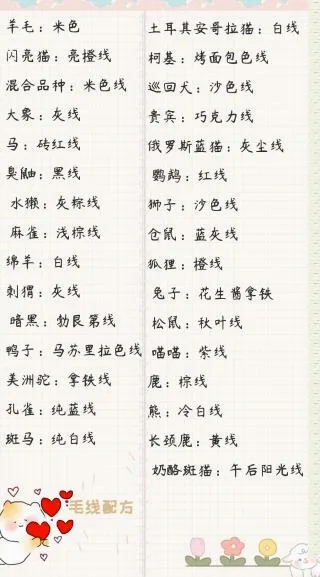 羊毛：米色
闪亮猫：亮橙线
混合品种：米色线
大象：灰线
马：砖红线
臭鼬：黑线
水獭：灰棕线
麻雀：浅棕线
绵羊：白线
刺猬：灰线
暗黑：勃艮第线
鸭子：马苏里拉色线
美洲驼：拿铁线
孔雀：纯蓝线
斑马：纯白线
毛线配方
土耳其安哥拉猫：白线
柯基：烤面包色线
巡回犬：沙色线
贵宾：巧克力线
俄罗斯蓝猫：灰尘线
鹦鹉：红线
狮子：沙色线
仓鼠：蓝灰线
狐狸：橙线
兔子：花生酱拿铁
松鼠：秋叶线
喵喵：紫线
鹿：棕线
熊：冷白线
长颈鹿：黄线
奶酪斑猫：午后阳光线